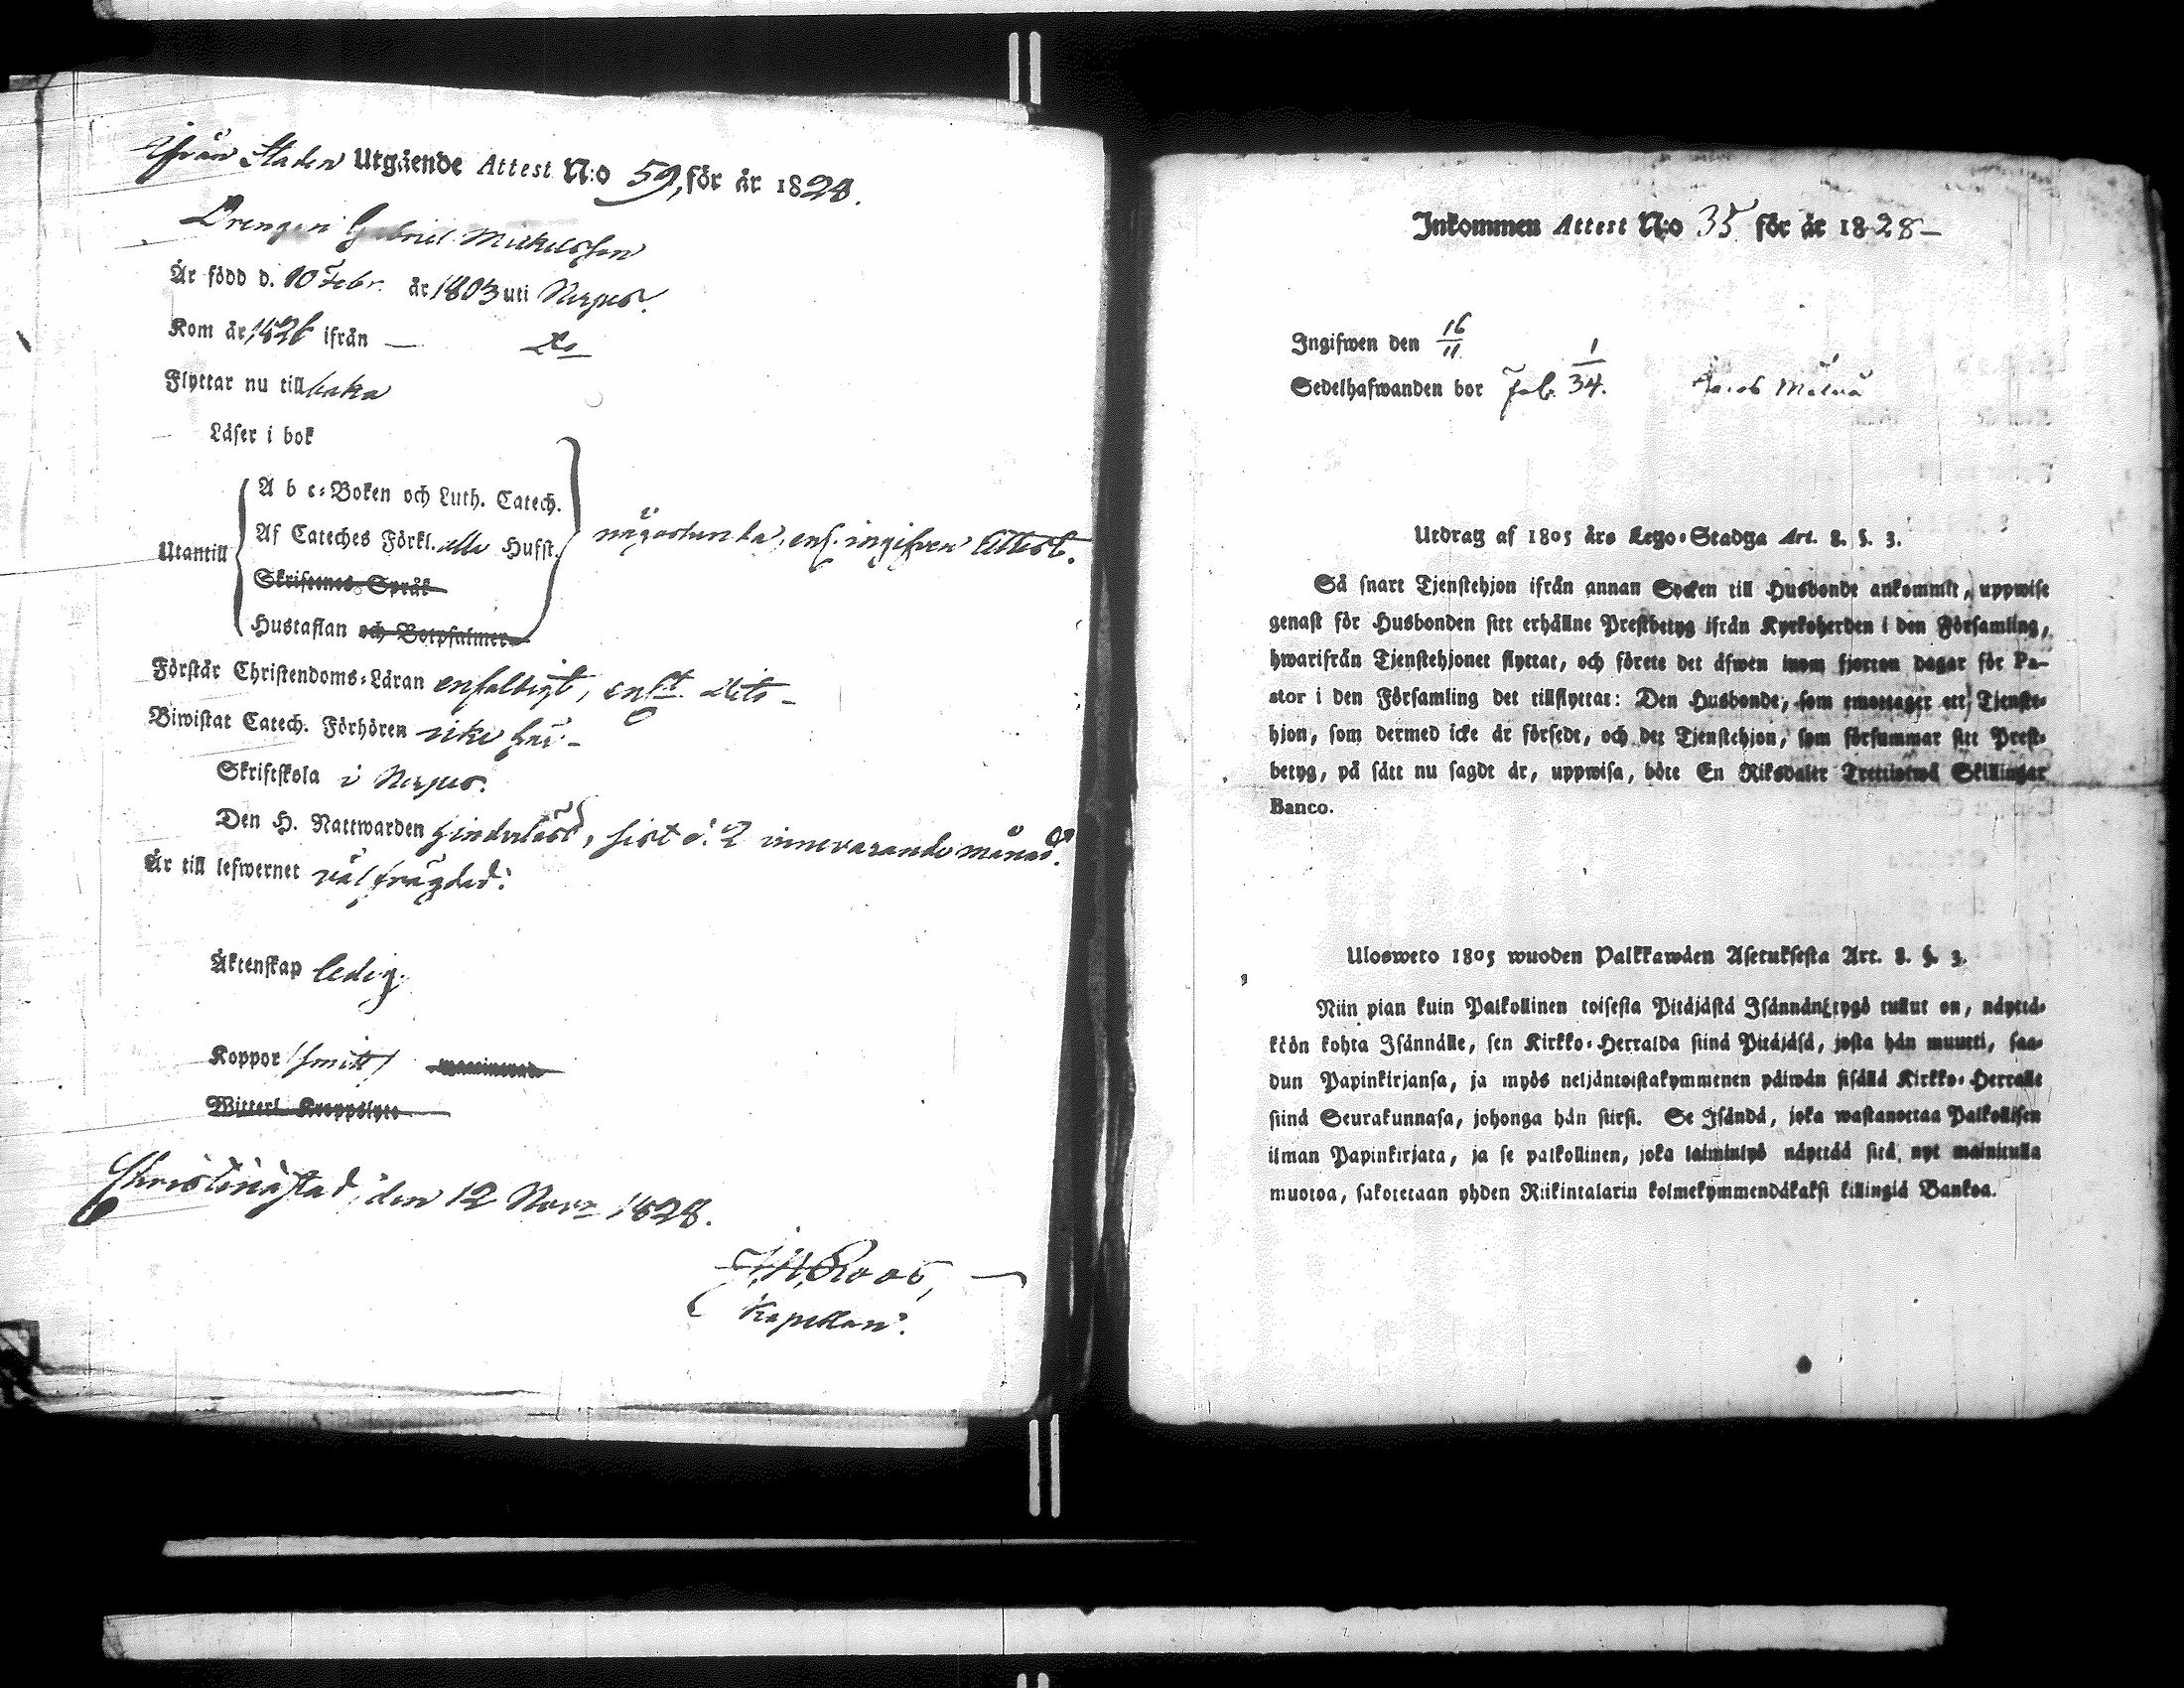 Ifrån Staden Utgående Attest N:o 59, för år 1828.
Drengen Gabriel Mickelsson
Är född d. 10 Febr. år 1803 uti Nerpes.
Kom år 1826 ifrån — Do
Flyttar nu tillbaka
Läser i bok
Utantill
A b c-Boken och Luth. Catech.
Af Cateches Förkl. eller Hufst.
någorlunda, enl. ingifven Attest.
Skriftenes Språk
Hustaflan och Botpsalmer
Förstår Christendoms-Läran enfaldigt, enl. dito –
Biwistat Catech. Förhören icke här –
Skriftskola i Nerpes.
Den H. Nattwarden hinderlöst, sist d. 2 innevarande månad.
Är till lefwernet välfrägdad.
Äktenskap ledig.
Koppor (smitt)
Witterl. Kroppslyte
Christinæstad, den 12 Nov. 1828.
Roos,
Kapellan.
Inkommen Attest N:o 35 för år 1828 –
Ingifwen den 16/11
Sedelhafwanden bor Fol. 1/34. Jacob
Utdrag af 1805 års Lego-Stadga Art. 8. §. 3.
Så snart Tjenstehjon ifrån annan Socken till Husbonde ankommit, uppwise
genast för Husbonden sitt erhållne Prestbetyg ifrån Kyrkoherden i den Församling,
hwarifrån Tjenstehjonet flyttat, och förete det äfwen inom fjorton dagar för Pa-
stor i den Församling det tillflyttat: Den Husbonde, som emottager ett Tjenste-
hjon, som dermed icke är försedt, och det Tjenstehjon, som försummar sitt Prest-
betyg, på sätt nu sagdt är, uppwisa, böte En Riksdaler Trettiotwå Skillingar
Banco.
Ulosweto 1805 wuoden Palkkawäen Asetuksesta Art. 8. §. 3.
Niin pian kuin Palkollinen toisesta Pitäjästä Isännän tygö tullut on, näyttä-
köön kohta Isännälle, sen Kirkko-Herralda siinä Pitäjäsä, josta hän muutti, saa-
dun Papinkirjansa, ja myös neljäntoistakymmenen päiwän sisällä Kirkko-Herralle
siinä Seurakunnasa, johonga hän siirsi. Se Isändä, joka wastanottaa Palkollisen
ilman Papinkirjata, ja se palkollinen, joka laiminlyö näyttää sitä, nyt mainitulla
muotoa, sakotetaan yhden Riikintalarin kolmekymmendäkaksi killingiä Bankoa.